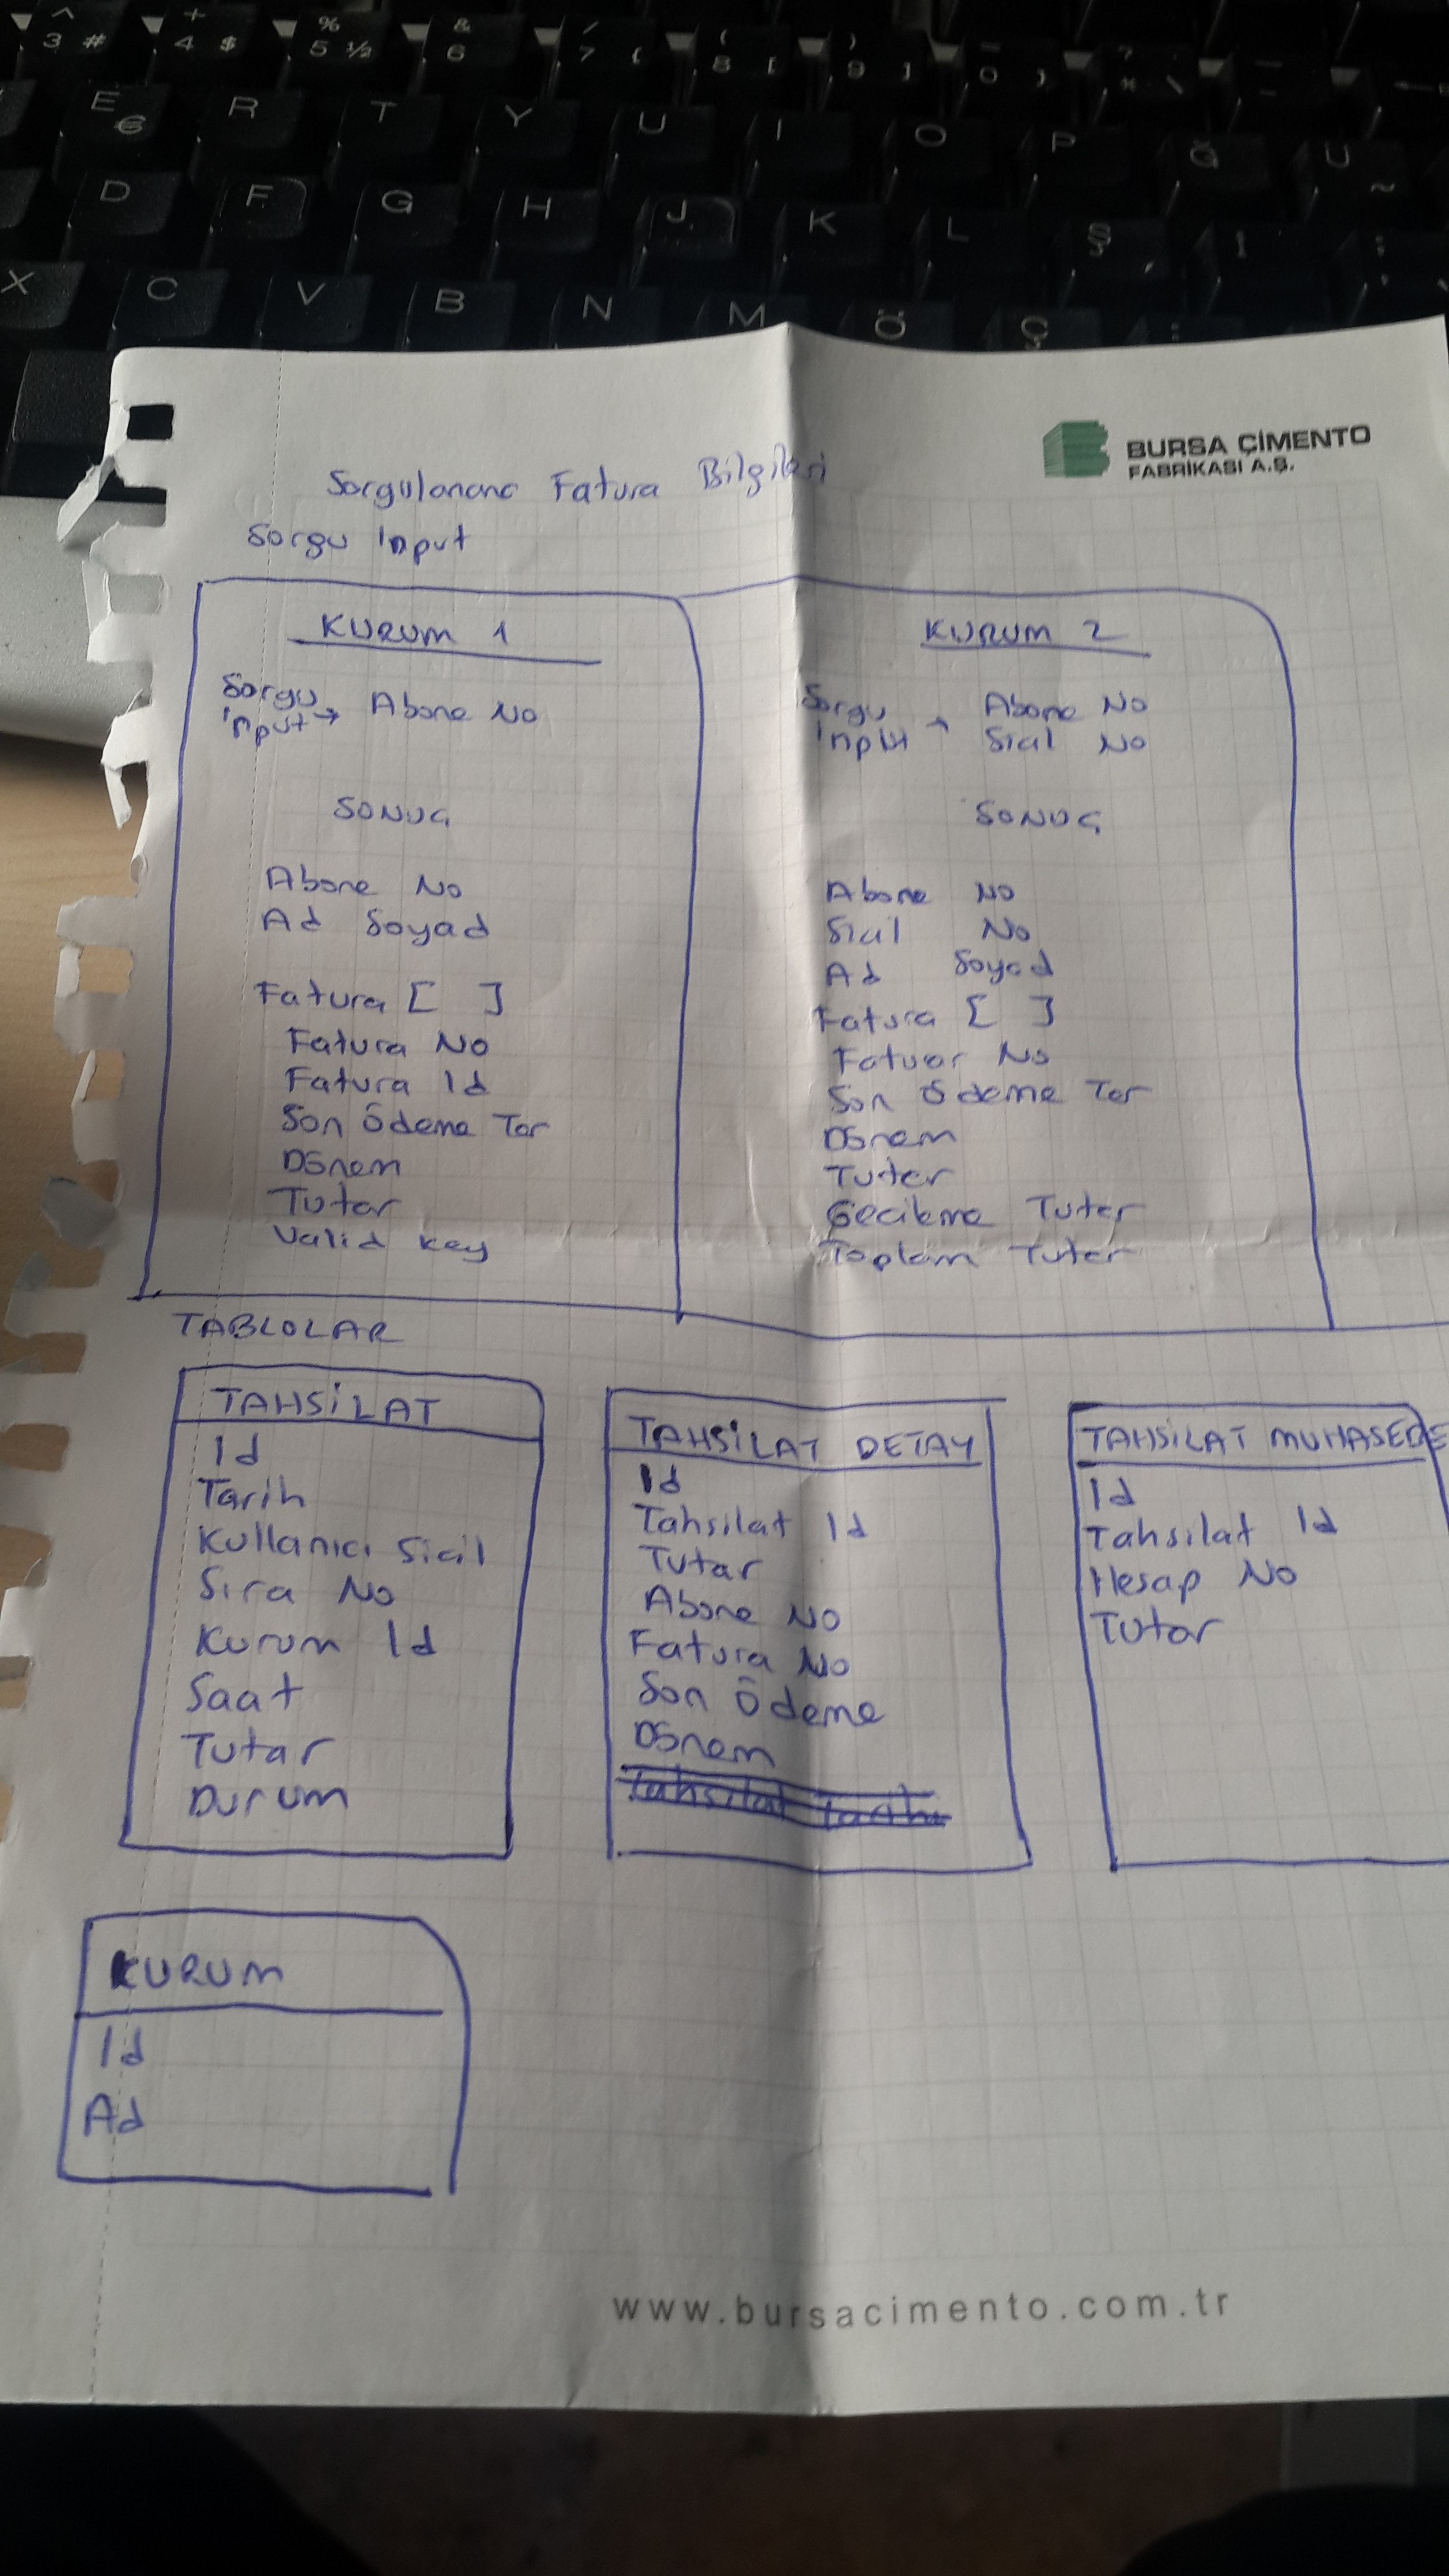 3 #
4 $
5 ½
6
7 {
8 [
9 ]
0 }
E €
R
T
Y
U
I
O
P
Ğ
Ü ~
D
F
G
H
J
K
L
Ş
İ
X
C
V
B
N
M
Ö
Ç
BURSA ÇİMENTO
FABRİKASI A.Ş.
Sorgulanana Fatura Bilgileri
Sorgu Input
KURUM 1
Sorgu
Input → Abone No
SONUÇ
Abone No
Ad Soyad
Fatura [ ]
Fatura No
Fatura Id
Son Ödeme Tar
Dönem
Tutar
Valid Key
KURUM 2
Sorgu
Input → Abone No
Sicil No
SONUÇ
Abone No
Sicil No
Ad Soyad
Fatura [ ]
Fatuar No
Son Ödeme Tar
Dönem
Tutar
Gecikme Tutar
Toplam Tutar
TABLOLAR
TAHSİLAT
Id
Tarih
Kullanıcı Sicil
Sıra No
Kurum Id
Saat
Tutar
Durum
TAHSİLAT DETAY
Id
Tahsilat Id
Tutar
Abone No
Fatura No
Son Ödeme
Dönem
Tahsilat Tarihi
TAHSİLAT MUHASEBE
Id
Tahsilat Id
Hesap No
Tutar
KURUM
Id
Ad
www.bursacimento.com.tr